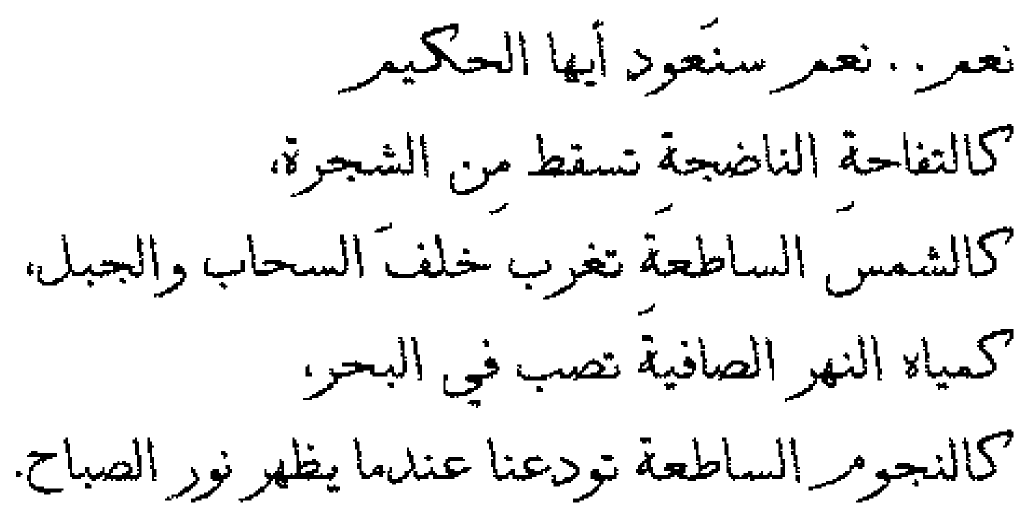 نعم.. نعم سنَعود أيها الحكيم
كالتفاحةِ الناضجةِ تسقط مِن الشجرة،
كالشمسِ الساطعةِ تغرب خلفَ السحاب والجبل،
كمياه النهر الصافيةِ تصب في البحر،
كالنجوم الساطعة تودعنا عندما يظهر نور الصباح.